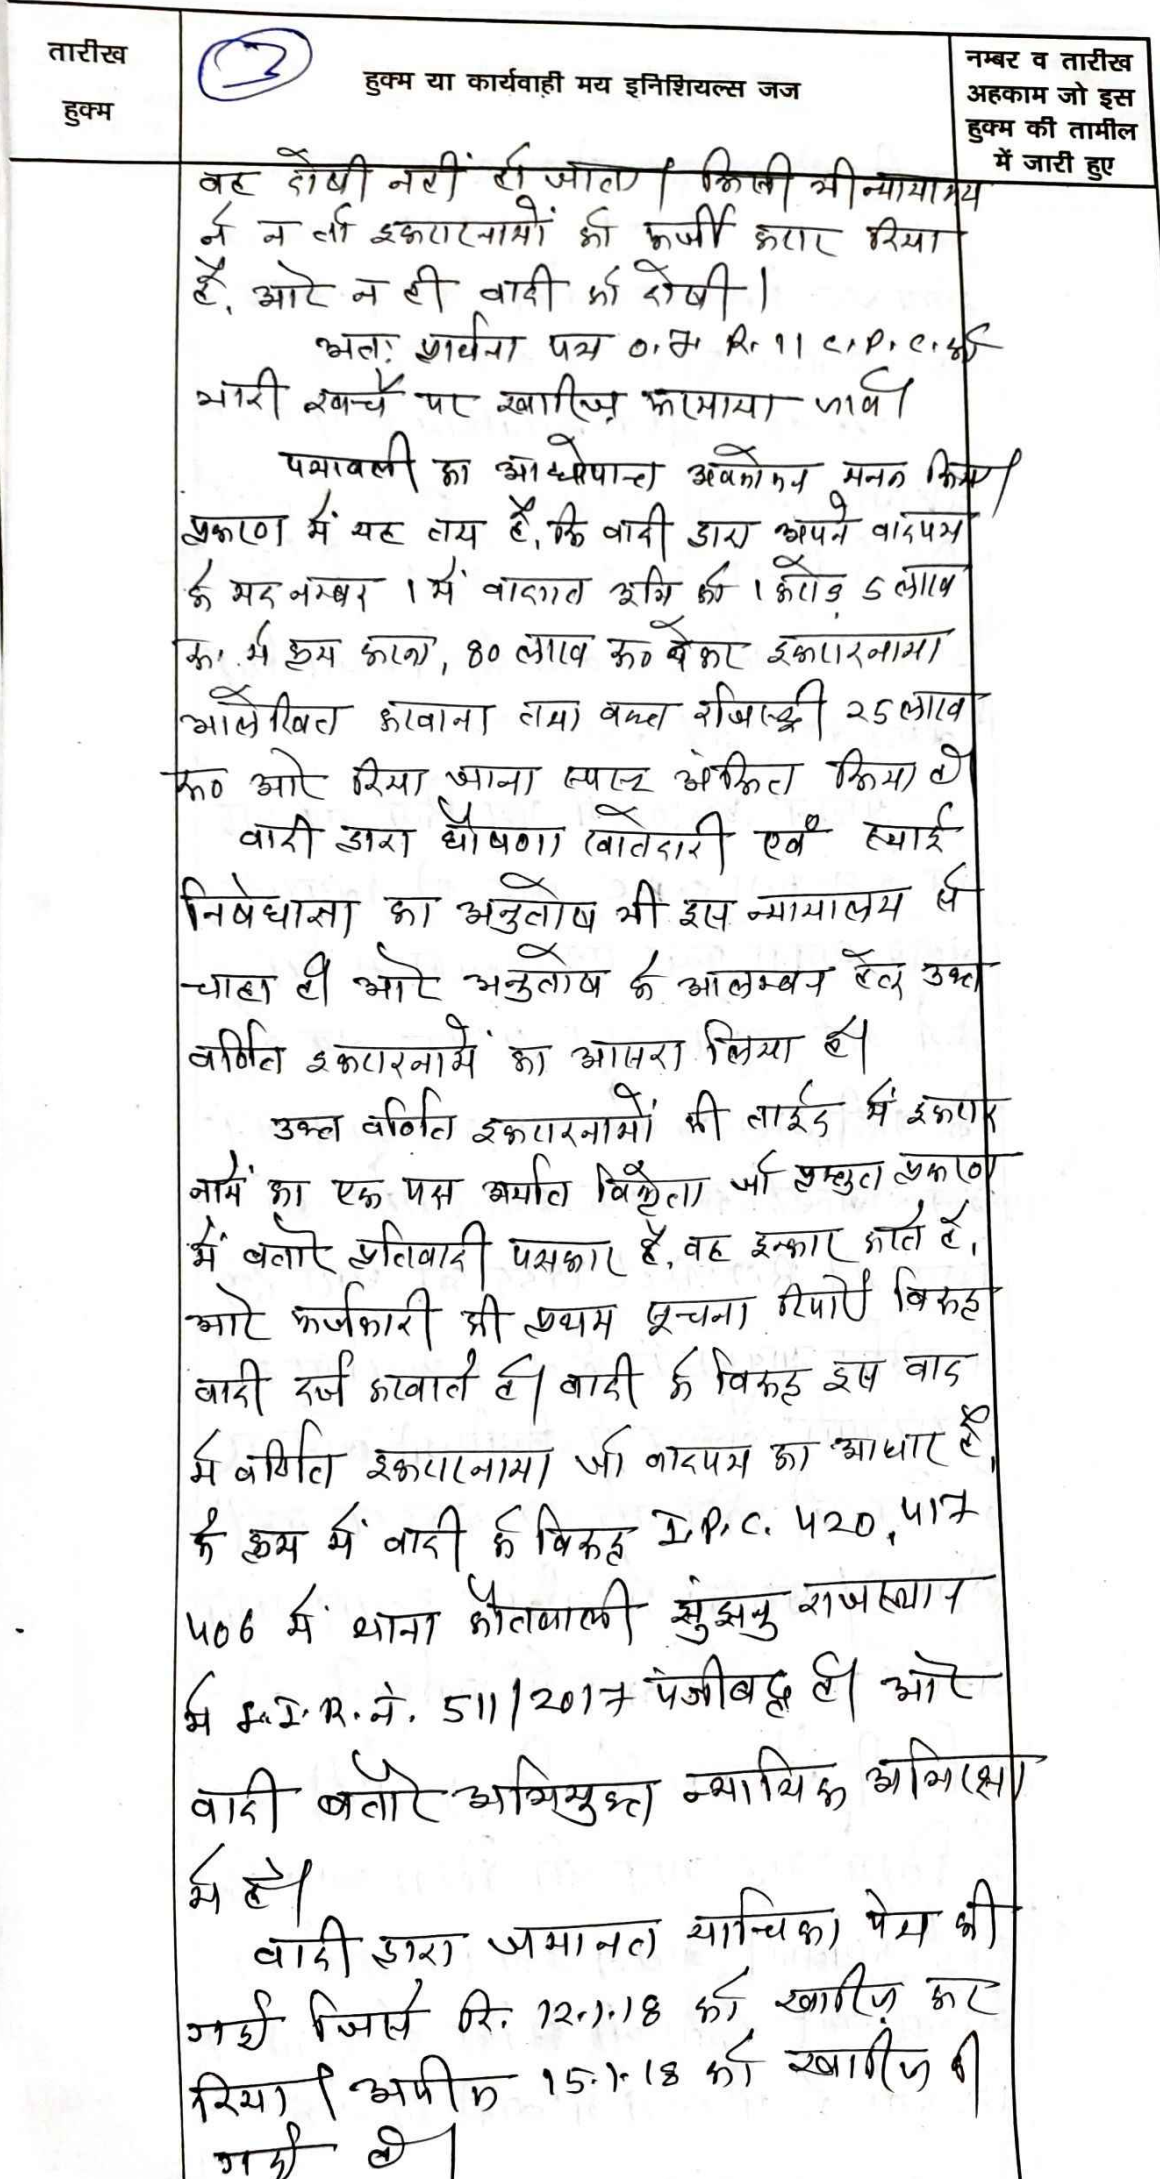 तारीख
हुक्म
3
हुक्म या कार्यवाही मय इनिशियल्स जज
नम्बर व तारीख
अहकाम जो इस
हुक्म की तामील
में जारी हुए
वह दोषी नहीं हो जाता। किसी भी न्यायालय
ने न तो इकरारनामों को फर्जी करार दिया
है, और न ही वादी को दोषी।
अतः प्रार्थना पत्र O. 7. R. 11 C. P. C. को
भारी खर्चे पर खारिज फरमाया जावे।
पत्रावली का आद्योपान्त अवलोकन मनन किया।
प्रकरण में यह तय है, कि वादी द्वारा अपने वादपत्र
के मद नम्बर 1 में वादगत भूमि को 1 करोड़ 5 लाख
रू. में क्रय करना, 80 लाख रू० देकर इकरारनामा
आलेखित करवाना तथा वक्त रजिस्ट्री 25 लाख
रू० और दिया जाना स्पष्ट अंकित किया है।
वादी द्वारा घोषणा खातेदारी एवं स्थाई
निषेधाज्ञा का अनुतोष भी इस न्यायालय से
चाहा है। और अनुतोष के आलम्बन हेतु उक्त
वर्णित इकरारनामें का आसरा लिया है।
उक्त वर्णित इकरारनामों की ताईद में इकरार
नामें का एक पक्ष अर्थात विक्रेता जो प्रस्तुत प्रकरण
में बतौर प्रतिवादी पक्षकार है, वह इन्कार करते है,
और फर्जकारी की प्रथम सूचना रिपोर्ट विरूद्ध
वादी दर्ज करवाते है। वादी के विरूद्ध इस वाद
में वर्णित इकरारनामा जो वादपत्र का आधार है,
के क्रय में वादी के विरूद्ध I.P.C. 420, 417
406 में थाना कोतवाली झुंझनु राजस्थान
में F.I.R. नं. 511/2017 पंजीबद्ध है। और
वादी बतौर अभियुक्त न्यायिक अभिरक्षा
में है।
वादी द्वारा जमानत याचिका पेश की
गई जिसे दि. 12.1.18 को खारिज कर
दिया। अपील 15.1.18 को खारिज की
गई है।